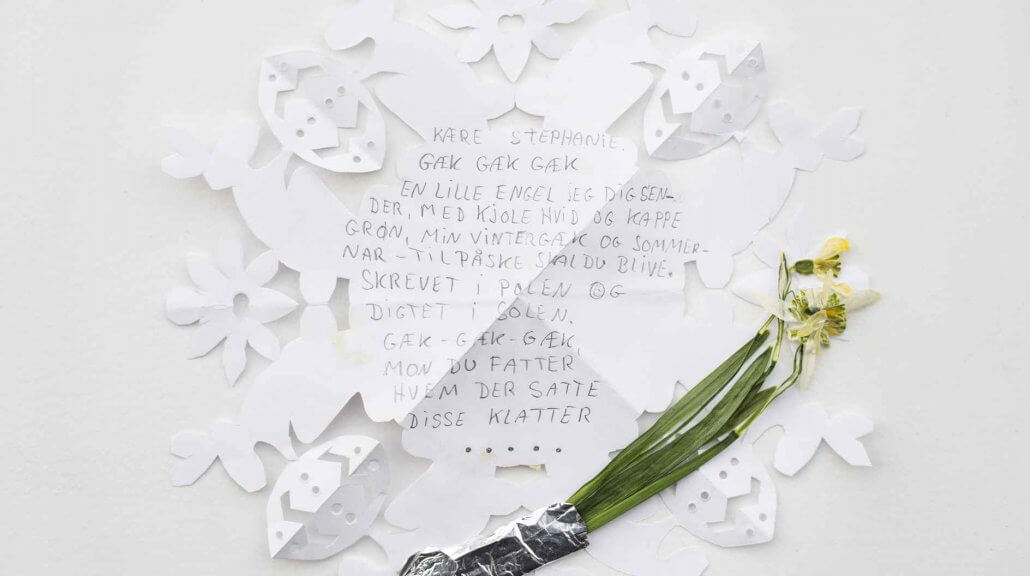 KÆRE STEPHANIE.
GÆK GÆK GÆK
EN LILLE ENGEL JEG DIG SEN-
DER, MED KJOLE HVID OG KAPPE
GRØN, MIN VINTERGÆK OG SOMMER-
NAR - TIL PÅSKE SKAL DU BLIVE.
SKREVET I POLEN OG
DIGTET I SOLEN.
GÆK - GÆK - GÆK,
MON DU FATTER
HVEM DER SATTE
DISSE KLATTER
.....